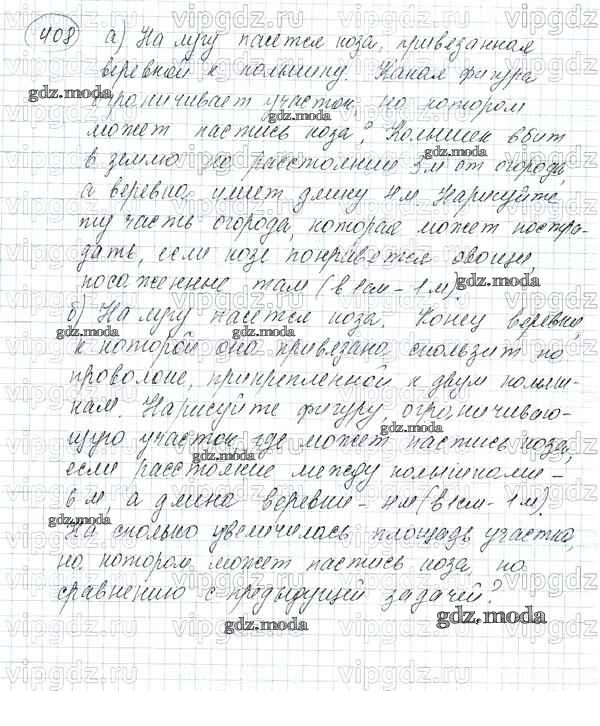 408 а) На лугу пасется коза, привязанная
веревкой к колышку. Какая фигура
ограничивает участок, на котором
может пастись коза? Колышек вбит
в землю на расстоянии 3м от огорода,
а веревка имеет длину 4м. Нарисуйте
ту часть огорода, которая может постра-
дать, если козе понравятся овощи,
посаженные там (в 1см - 1м).
б) На лугу пасется коза. Конец веревки,
к которой она привязана скользит по
проволоке, прикрепленной к двум колыш-
кам. Нарисуйте фигуру, ограничиваю-
щую участок, где может пастись коза,
если расстояние между колышками -
6м, а длина веревки - 4м (в 1см - 1м).
На сколько увеличилась площадь участка,
на котором может пастись коза, по
сравнению с предыдущей задачей?
gdz.moda
vipgdz.ru